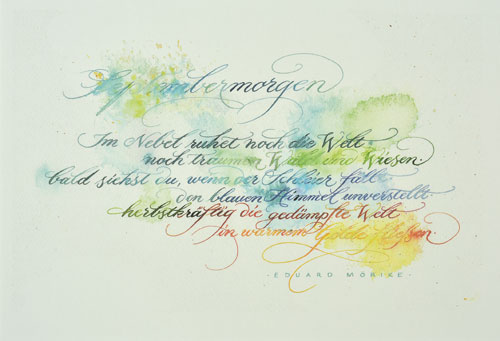 Septembermorgen
Im Nebel ruhet noch die Welt
noch träumen Wald und Wiesen.
bald siehst du, wenn der Schleier fällt
den blauen Himmel unverstellt
herbstkräftig die gedämpfte Welt
in warmem Golde fließen.
· EDUARD MÖRIKE ·